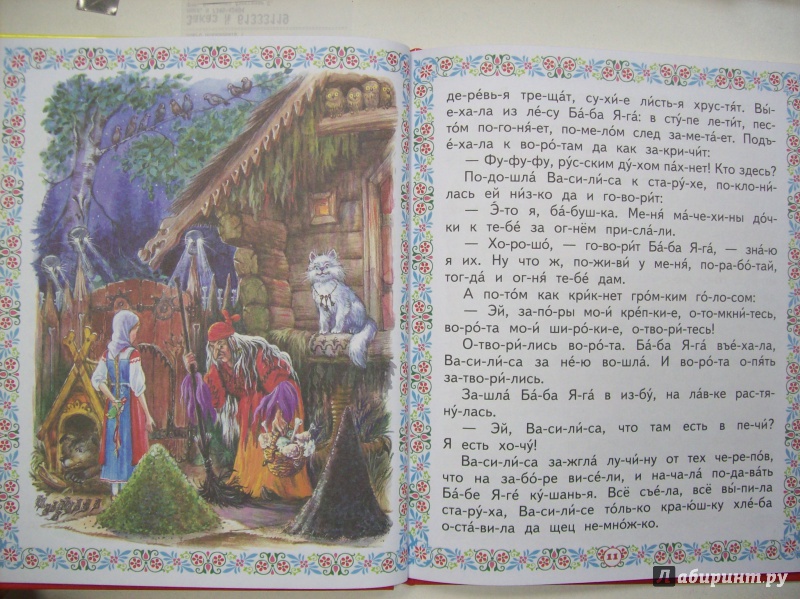 Заказ № 61333119
де-ре́вь-я тре-ща́т, су-хи́-е ли́сть-я хрус-тя́т. Вы́-
е-ха-ла из ле́-су Ба́-ба Я-га́: в сту́-пе ле-ти́т, пес-
то́м по-го-ня́-ет, по-ме-ло́м след за-ме-та́-ет. Подъ-
е́-ха-ла к во-ро́-там да как за-кри-чи́т:
— Фу-фу-фу, ру́с-ским ду́-хом па́х-нет! Кто здесь?
По-до-шла́ Ва-си-ли́-са к ста-ру́-хе, по-кло-ни́-
лась ей ни́з-ко да и го-во-ри́т:
— Э́-то я, ба́-буш-ка. Ме-ня́ ма́-че-хи-ны до́ч-
ки к те-бе́ за ог-нём при-сла́-ли.
— Хо-ро-шо́, — го-во-ри́т Ба́-ба Я-га́, — зна́-ю
я их. Ну что ж, по-жи-ви́ у ме-ня́, по-ра-бо́-тай,
тог-да́ и ог-ня́ те-бе́ дам.
А по-то́м как кри́к-нет гро́м-ким го́-ло-сом:
— Эй, за-по́-ры мо-и́ кре́п-ки-е, о-то-мкни́-тесь,
во-ро́-та мо-и́ ши-ро́-ки-е, о-тво-ри́-тесь!
О-тво-ри́-лись во-ро́-та. Ба́-ба Я-га́ въе́-ха-ла,
Ва-си-ли́-са за не́-ю во-шла́. И во-ро́-та о-пя́ть
за-тво-ри́-лись.
За-шла́ Ба́-ба Я-га́ в из-бу́, на ла́в-ке рас-тя-
ну́-лась.
— Эй, Ва-си-ли́-са, что там есть в пе-чи́?
Я есть хо-чу́!
Ва-си-ли́-са за-жгла́ лу-чи́-ну от тех че-ре-по́в,
что на за-бо́-ре ви-се́-ли, и на-ча-ла́ по-да-ва́ть
Ба́-бе Я-ге́ ку́-шань-я. Всё съе́-ла, всё вы́-пи-ла
ста-ру́-ха, Ва-си-ли́-се то́ль-ко кра-ю́ш-ку хле́-ба
о-ста́-ви-ла да щец не-мно́ж-ко.
11
Лабиринт.ру